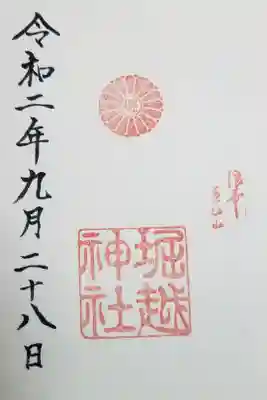 令和二年九月二十八日
堀越
神社